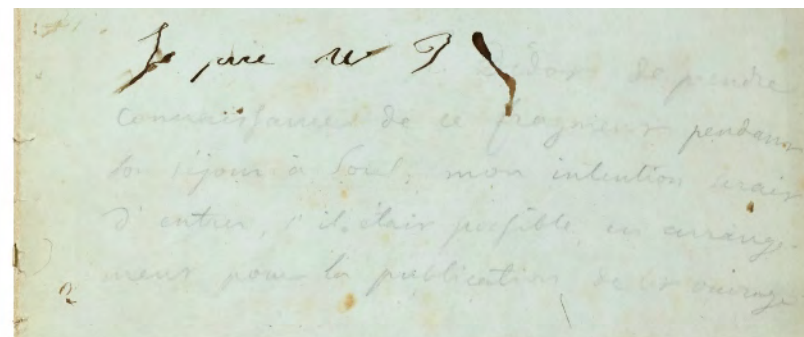 Je prie Mr Didot de prendre
connaissance de ce fragment pendant
son séjour à Soul, mon intention serait
d'entrer, s'il était possible, en arrange-
ment pour la publication de cet ouvrage